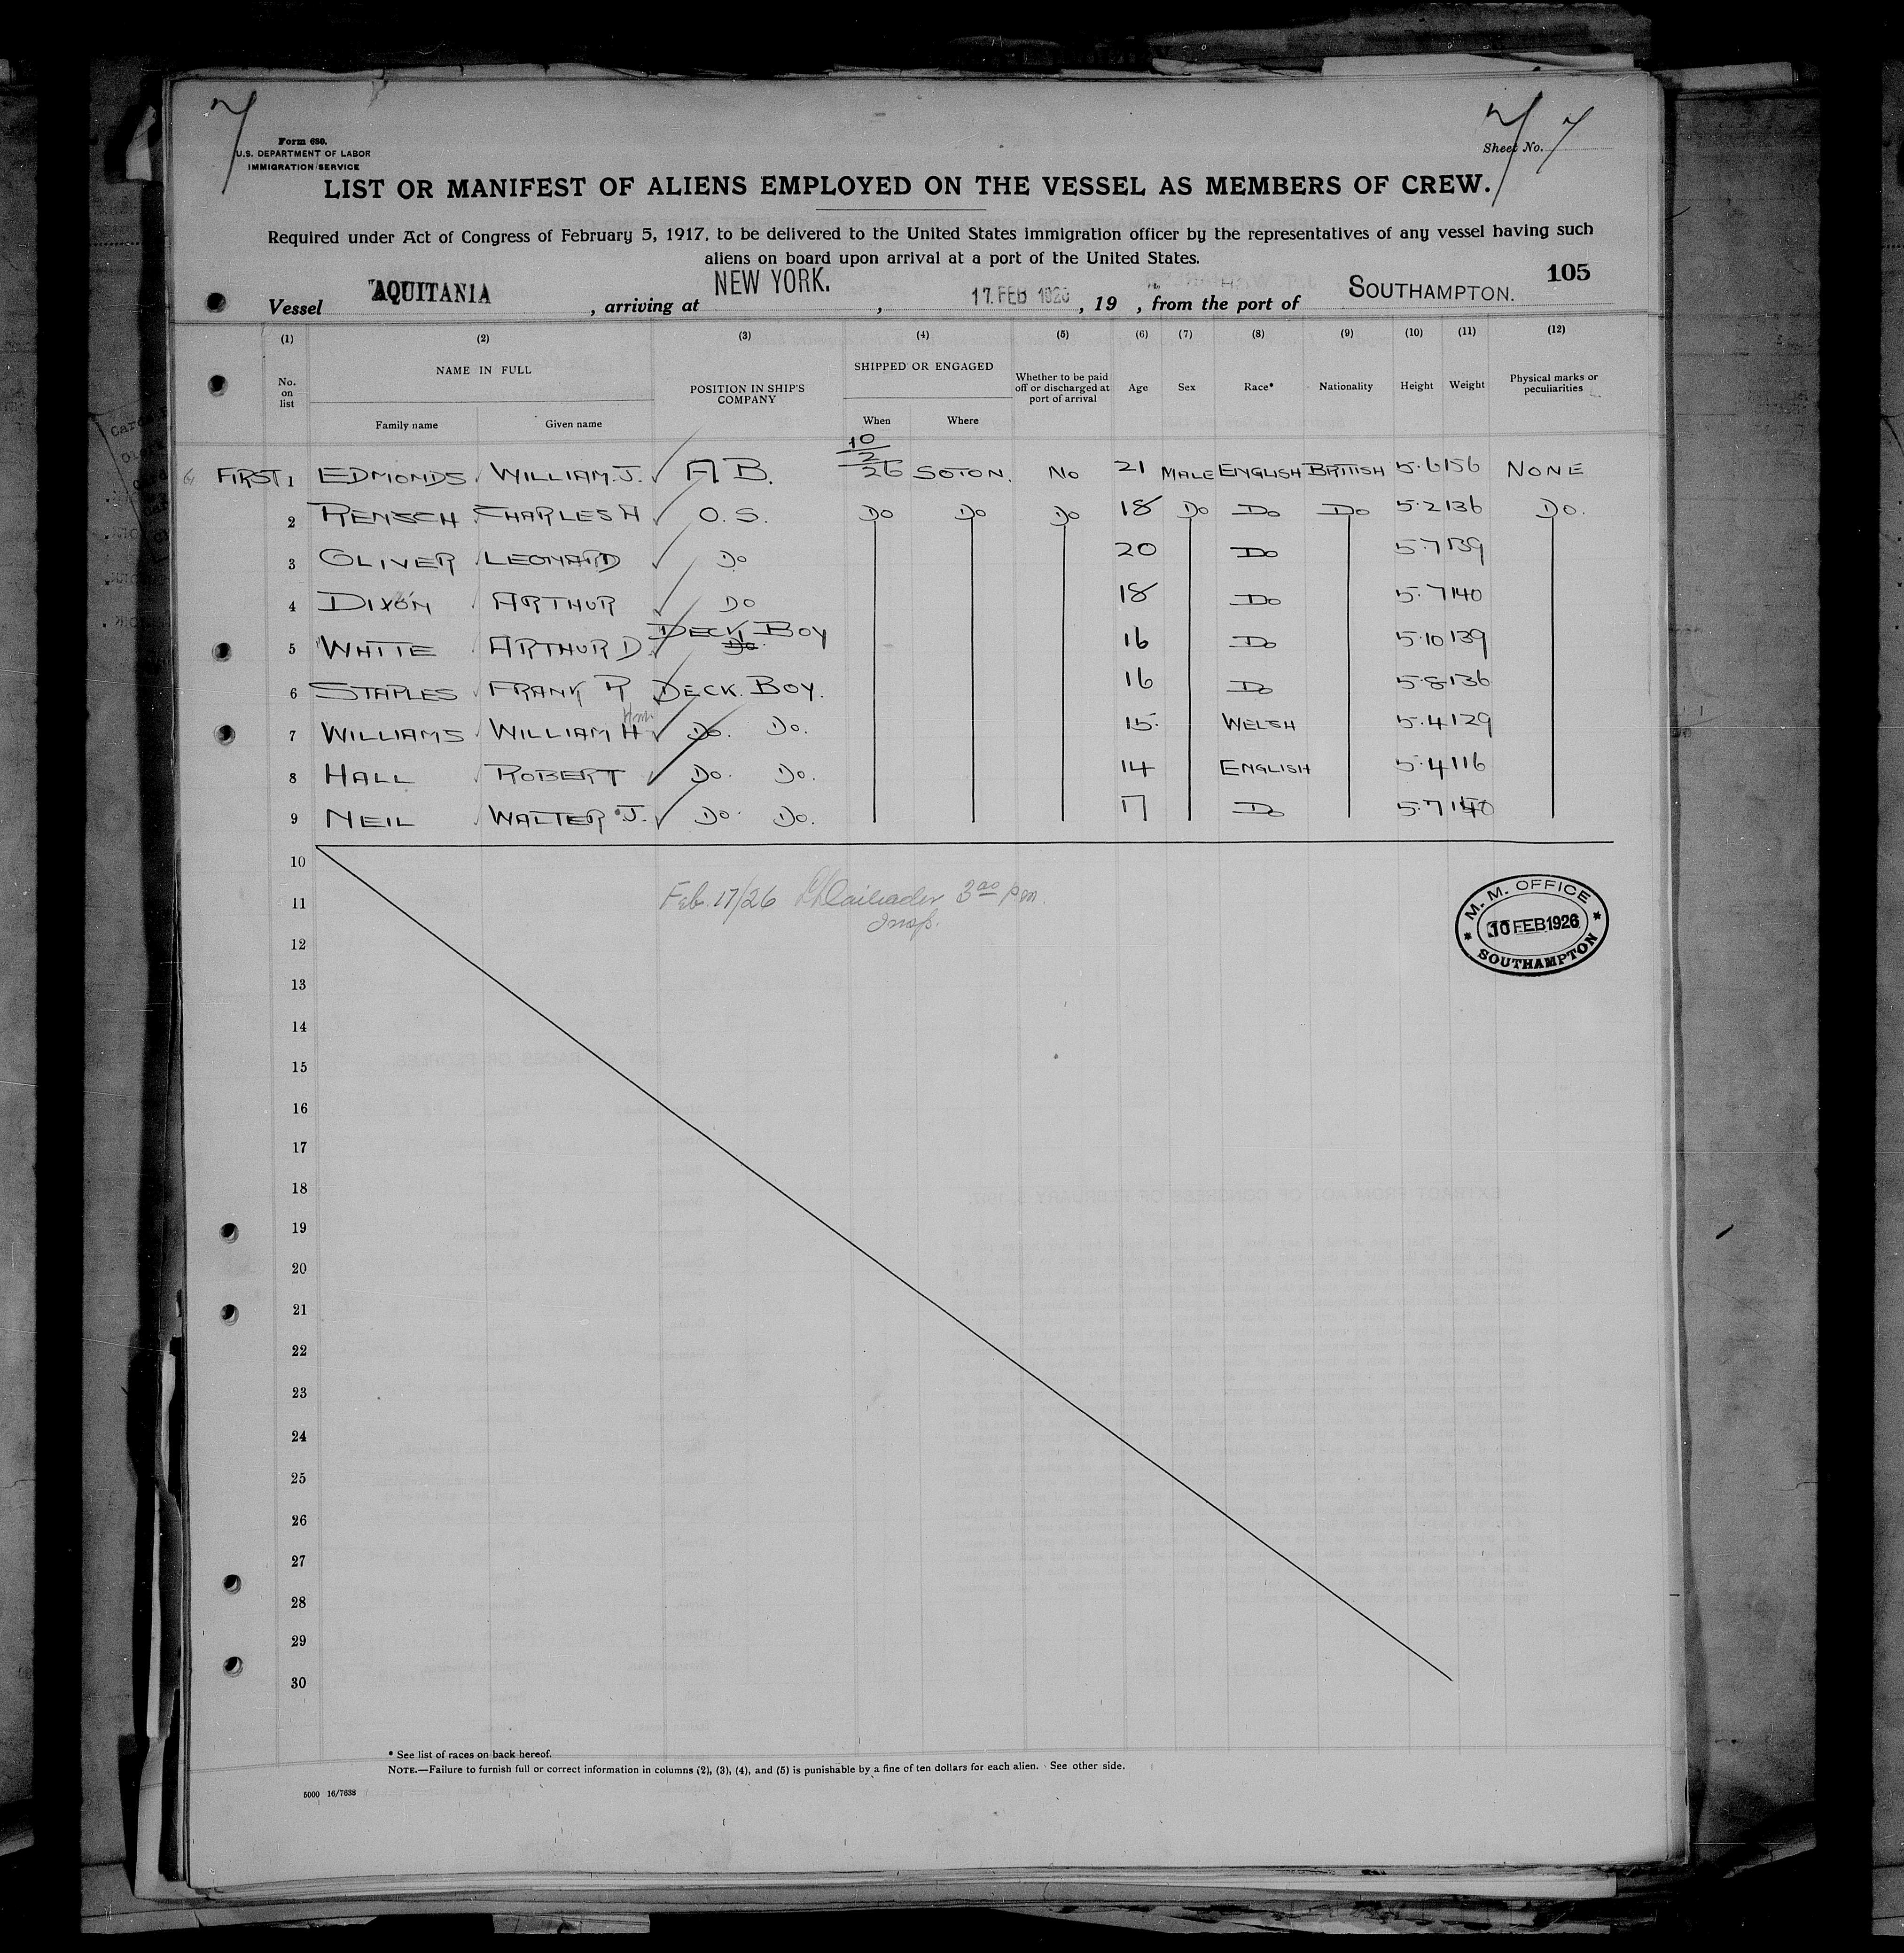 7
7
Form 680.
U.S. DEPARTMENT OF LABOR
IMMIGRATION SERVICE
Sheet No. 7
LIST OR MANIFEST OF ALIENS EMPLOYED ON THE VESSEL AS MEMBERS OF CREW.
Required under Act of Congress of February 5, 1917, to be delivered to the United States immigration officer by the representatives of any vessel having such
aliens on board upon arrival at a port of the United States.
105
Vessel AQUITANIA, arriving at NEW YORK., 17 FEB 1926, 19 , from the port of SOUTHAMPTON.
(1) (2) (3) (4) (5) (6) (7) (8) (9) (10) (11) (12)
No. on list NAME IN FULL POSITION IN SHIP'S COMPANY SHIPPED OR ENGAGED Whether to be paid off or discharged at port of arrival Age Sex Race* Nationality Height Weight Physical marks or peculiarities
Family name Given name When Where
FIRST 1 EDMONDS WILLIAM.J. A B. 10/2/26 SOTON. NO 21 MALE ENGLISH BRITISH 5.6 156 NONE
2 RENSCH CHARLES H O.S. DO DO DO 18 DO DO DO 5.2 136 DO.
3 OLIVER LEONARD DO 20 DO 5.7 139
4 DIXON ARTHUR DO 18 DO 5.7 140
5 WHITE ARTHUR D. DECK BOY DO 16 DO 5.10 139
6 STAPLES FRANK R DECK. BOY. 16 DO 5.8 136
7 WILLIAMS WILLIAM H DO. DO. 15. WELSH 5.4 129
8 HALL ROBERT DO. DO. 14 ENGLISH 5.4 116
9 NEIL WALTER J. DO. DO. 17 DO 5.7 140
10
11 Feb. 17/26 3 00 pm.
Insp.
12
M. M. OFFICE
10 FEB 1926
SOUTHAMPTON
13
14
15
16
17
18
19
20
21
22
23
24
25
26
27
28
29
30
* See list of races on back hereof.
NOTE.—Failure to furnish full or correct information in columns (2), (3), (4), and (5) is punishable by a fine of ten dollars for each alien. See other side.
5000 16/7638